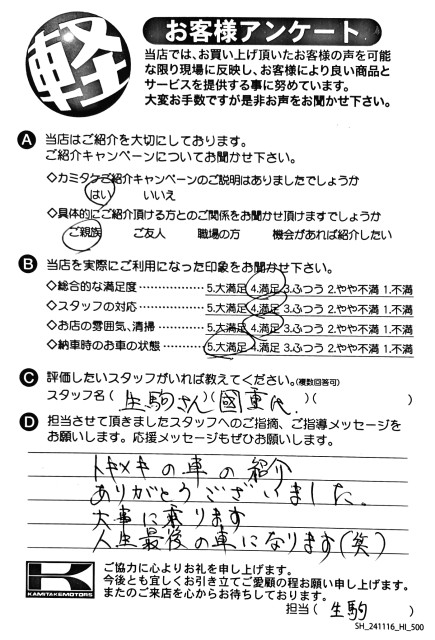 軽
お客様アンケート
当店では、お買い上げ頂いたお客様の声を可能
な限り現場に反映し、お客様により良い商品と
サービスを提供する事に努めています。
大変お手数ですが是非お声をお聞かせ下さい。
A 当店はご紹介を大切にしております。
ご紹介キャンペーンについてお聞かせ下さい。
◇カミタケご紹介キャンペーンのご説明はありましたでしょうか
はい いいえ
◇具体的にご紹介頂ける方とのご関係をお聞かせ頂けますでしょうか
ご親族 ご友人 職場の方 機会があれば紹介したい
B 当店を実際にご利用になった印象をお聞かせ下さい。
◇総合的な満足度………………5.大満足 4.満足 3.ふつう 2.やや不満 1.不満
◇スタッフの対応………………5.大満足 4.満足 3.ふつう 2.やや不満 1.不満
◇お店の雰囲気、清掃…………5.大満足 4.満足 3.ふつう 2.やや不満 1.不満
◇納車時のお車の状態…………5.大満足 4.満足 3.ふつう 2.やや不満 1.不満
C 評価したいスタッフがいれば教えてください。(複数回答可)
スタッフ名(生駒さん)(國重氏)( )
D 担当させて頂きましたスタッフへのご指摘、ご指導メッセージを
お願いします。応援メッセージもぜひお願いします。
トキメキの車の紹介
ありがとうございました。
大事に乗ります
人生最後の車になります(笑)
K
KAMITAKEMOTORS
ご協力に心よりお礼を申し上げます。
今後とも宜しくお引き立てご愛顧の程お願い申し上げます。
またのご来店を心からお待ちしております。
担当(生駒)
SH_241116_HI_500